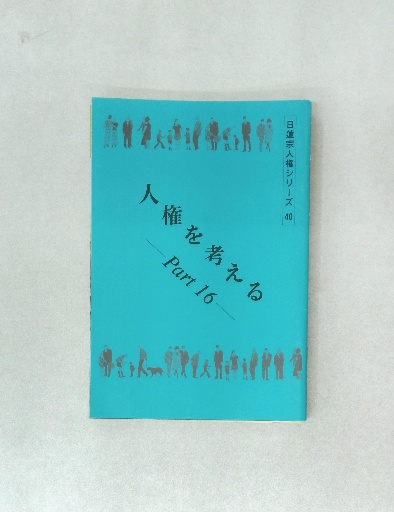 日蓮宗人権シリーズ 40
人権を考える
—Part 16—